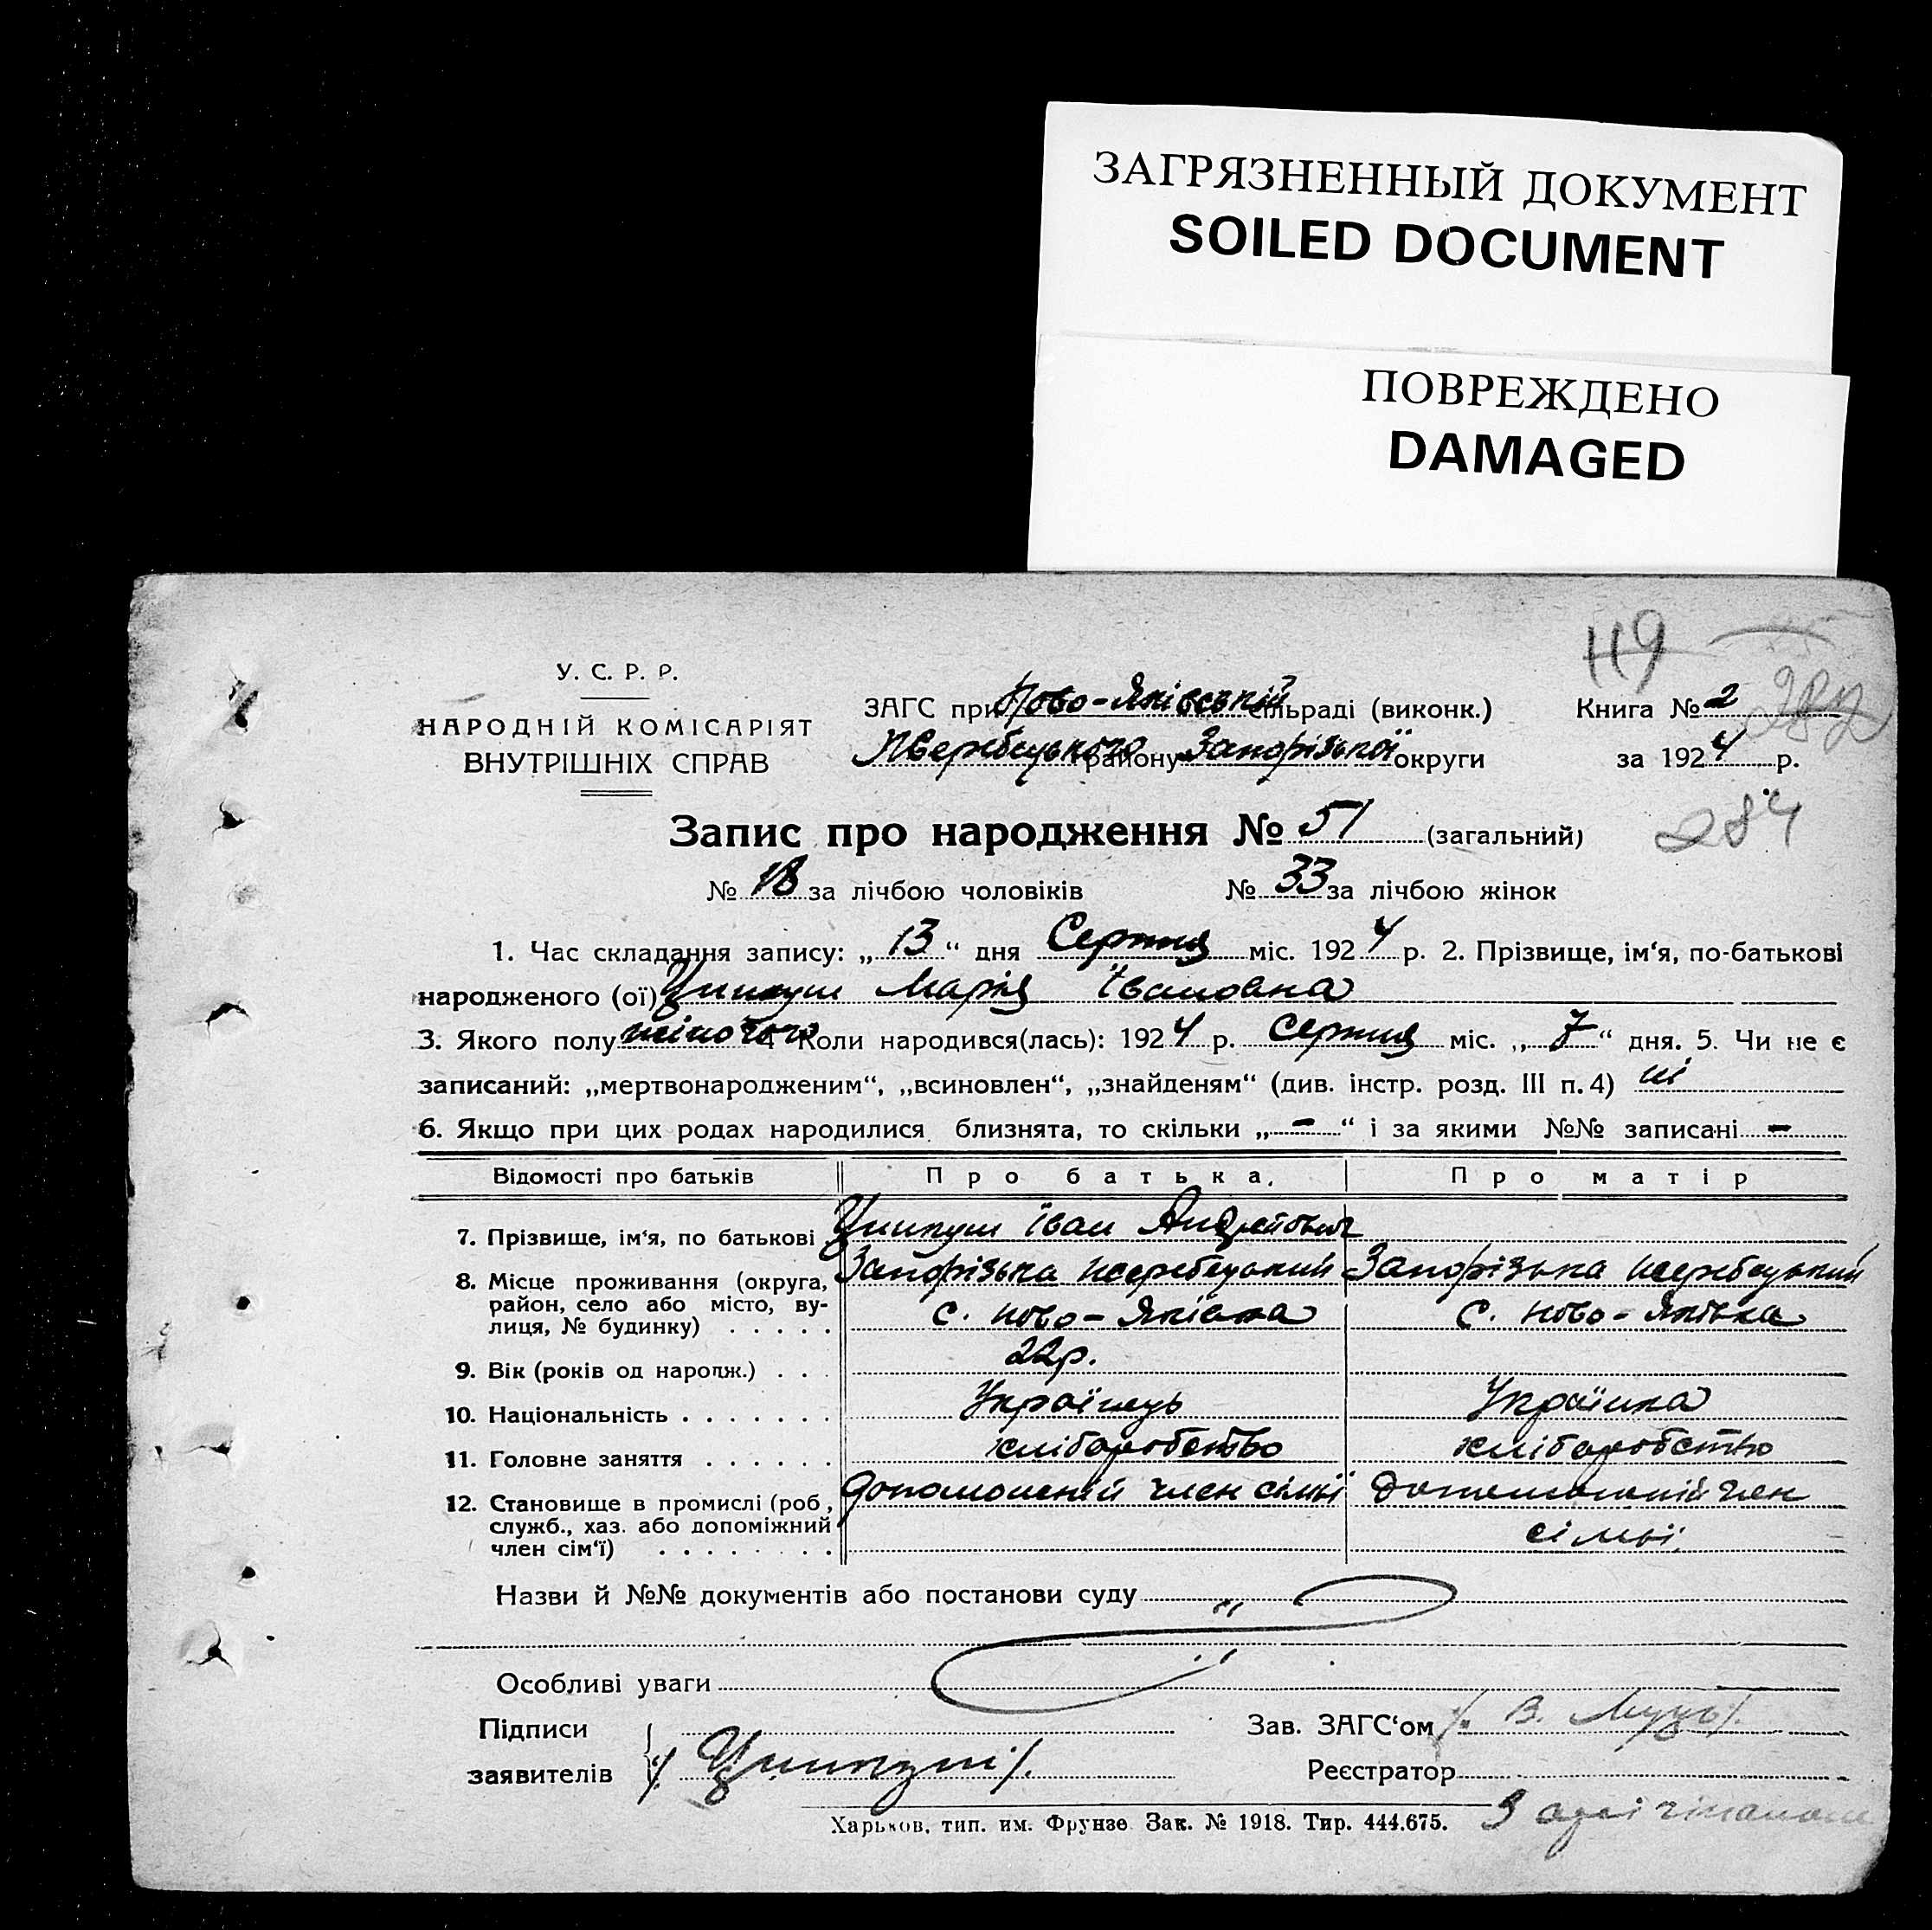 ЗАГРЯЗНЕННЫЙ ДОКУМЕНТ
SOILED DOCUMENT
ПОВРЕЖДЕНО
DAMAGED
119
У. С. Р. Р.
НАРОДНІЙ КОМІСАРІЯТ
ВНУТРІШНІХ СПРАВ
ЗАГС при Ново-Яківській сільраді (виконк.)
Жеребецького району Запорізької округи
Книга № 2
282
за 1924 р.
Запис про народження № 51 (загальний)
284
№ 18 за лічбою чоловіків № 33 за лічбою жінок
1. Час складання запису: „13“ дня Серпня міс. 1924 р. 2. Прізвище, ім‘я, по-батькові
народженого (ої) Ципкуш Марія Івановна
3. Якого полу жіночого 4 Коли народився(лась): 1924 р. Серпня міс. „7“ дня. 5. Чи не є
записаний: „мертвонародженим“, „всиновлен“, „знайденям“ (див. інстр. розд. III п. 4) ні
6. Якщо при цих родах народилися близнята, то скільки „-“ і за якими №№ записані -
Відомості про батьків Про батька, Про матір
7. Прізвище, ім‘я, по батькові Ципкуш Іван Андрійович
8. Місце проживання (округа, Запорізька Жеребецький Запорізька Жеребецький
район, село або місто, ву-
лиця, № будинку) . . . . . с. Ново-Яківка с. Ново-Яківка
9. Вік (років од народж.) . . . 22р.
10. Національність . . . . . . . Українець Українка
11. Головне заняття . . . . . . хліборобство хліборобство
12. Становище в промислі (роб, допоможній член сімьї допоможній член
служб., хаз. або допоміжний
член сім‘ї) . . . . . . . . сімьї.
Назви й №№ документів або постанови суду "
Особливі уваги
Підписи
заявителів /Ципкуш/.
Зав. ЗАГС‘ом /. В. /.
Реєстратор
Харьков, тип. им. Фрунзе Зак. № 1918. Тир. 444.675.